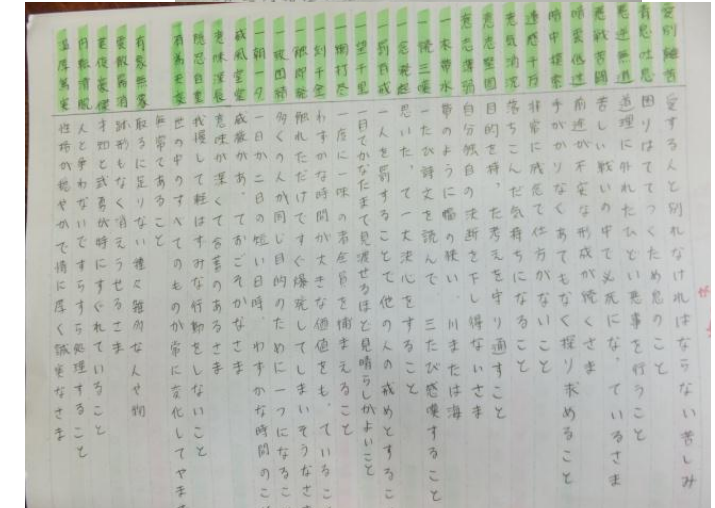 愛別離苦 愛する人と別れなければならない苦しみ
青息吐息 困りはててつくため息のこと
悪逆無道 道理に外れたひどい悪事を行うこと
悪戦苦闘 苦しい戦いの中で必死になっているさま
暗雲低迷 前途が不安な形成が続くさま
暗中模索 手がかりなくあてもなく探り求めること
遺憾千万 非常に残念で仕方がないこと
意気消沈 落ちこんだ気持ちになること
意志堅固 目的を持った考えを守り通すこと
意志薄弱 自分独自の決断を下し得ないさま
一衣帯水 帯のように幅の狭い、川または海
一読三嘆 一たび詩文を読んで 三たび感嘆すること
一念発起 思いたって一大決心をすること
一罰百戒 一人を罰することで他の人の戒めとするこ
一望千里 一目でかなたまで見渡せるほど見晴らしがよいこと
一網打尽 一度に一味の者全員を捕まえること
一刻千金 わずかな時間が大きな価値をもっているこ
一触即発 触れただけですぐ爆発してしまいそうなさま
一致団結 多くの人が同じ目的のために一つになるこ
一朝一夕 一日か二日の短い日時。わずかな時間のこ
威風堂堂 威厳があっておごそかなさま
意味深長 意味が深くて含蓄のあるさま
隠忍自重 我慢して軽はずみな行動をしないこと
有為転変 世の中のすべてのものが常に変化してやまず
無常であること
有象無象 取るに足りない種々雑多な人や物
雲散霧消 跡形もなく消えうせるさま
英俊豪傑 才知と武勇が特にすぐれていること
円転滑脱 人と争わないですらすら処理すること
温厚篤実 性格が穏やかで情に厚く誠実なさま